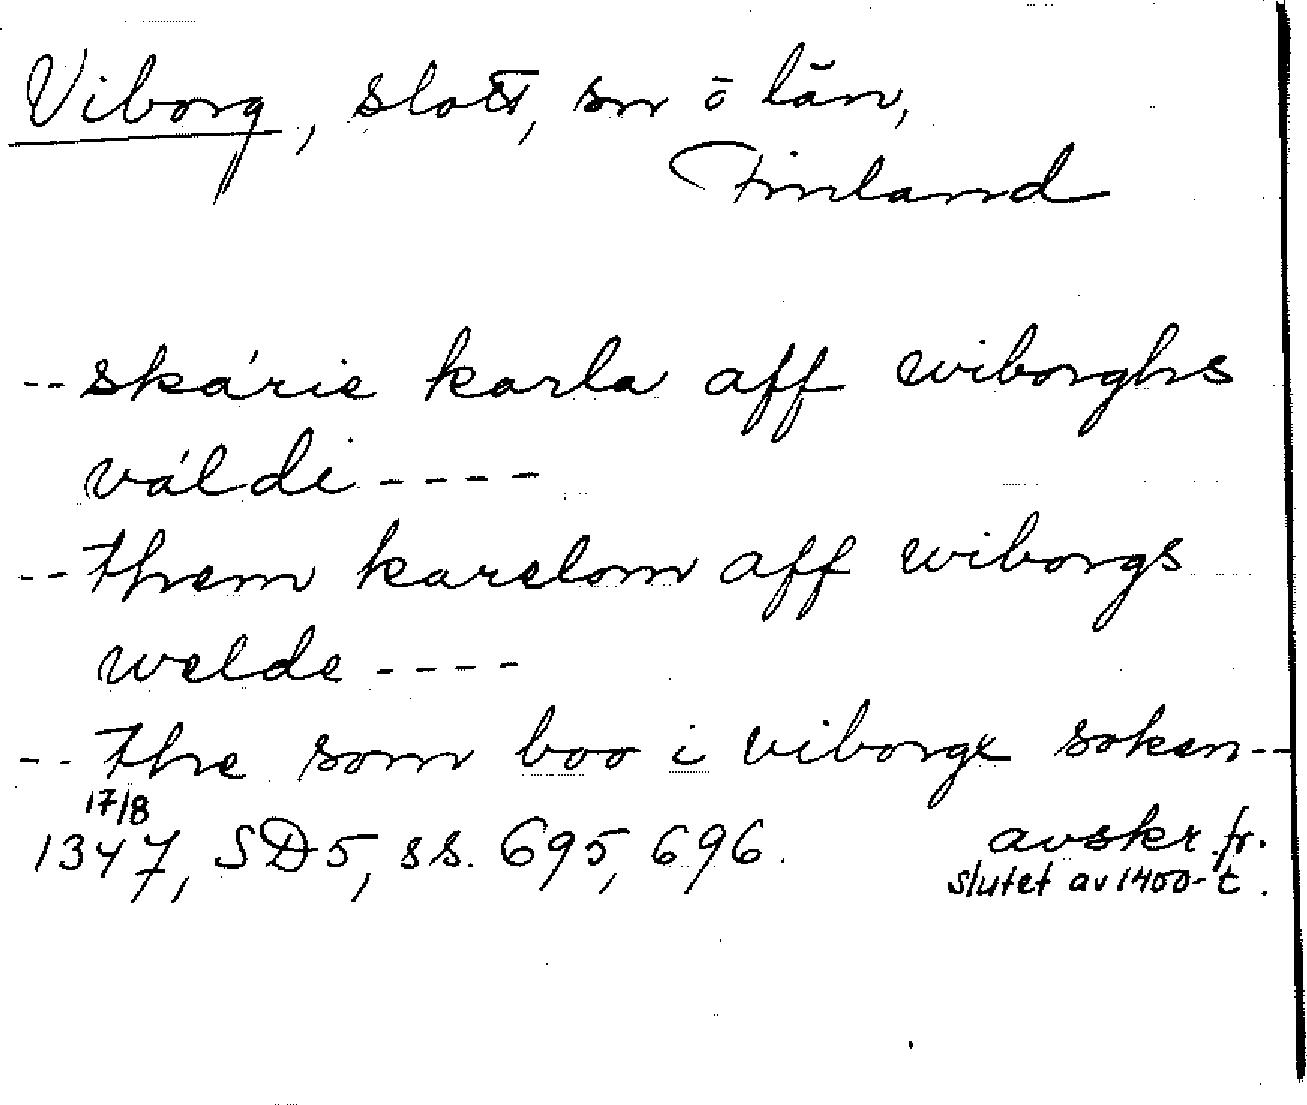 Viborg, slott, sn o län,
Finland
-- skárie karla aff wiborghs
váldi ----
-- them karelom aff wiborgs
welde ----
-- the som boo i viborgx soken --
17/8
1347, SD 5, ss. 695, 696. avskr. fr.
slutet av 1400-t.